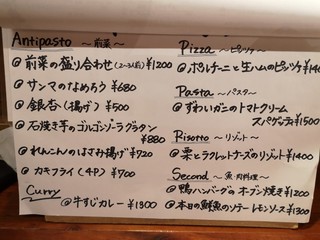 Antipasto ～前菜～
@前菜の盛り合わせ(2~3人前)¥1200
@サンマのなめろう ¥680
@銀杏(揚げ) ¥500
@石焼き芋のゴルゴンゾーラグラタン
¥880
@れんこんのはさみ揚げ ¥720
@カキフライ(4P) ¥700
Curry
@牛すじカレー ¥1300
Pizza ～ピッツァ～
@ポルチーニと生ハムのピッツァ ¥140
Pasta ～パスタ～
@ずわいガニのトマトクリーム
スパゲッティ ¥1500
Risotto ～リゾット～
@栗とラクレットチーズのリゾット ¥1400
Second ～魚・肉料理～
@鴨ハンバーグのオーブン焼き ¥1200
@本日の鮮魚のソテーレモンソース ¥1300